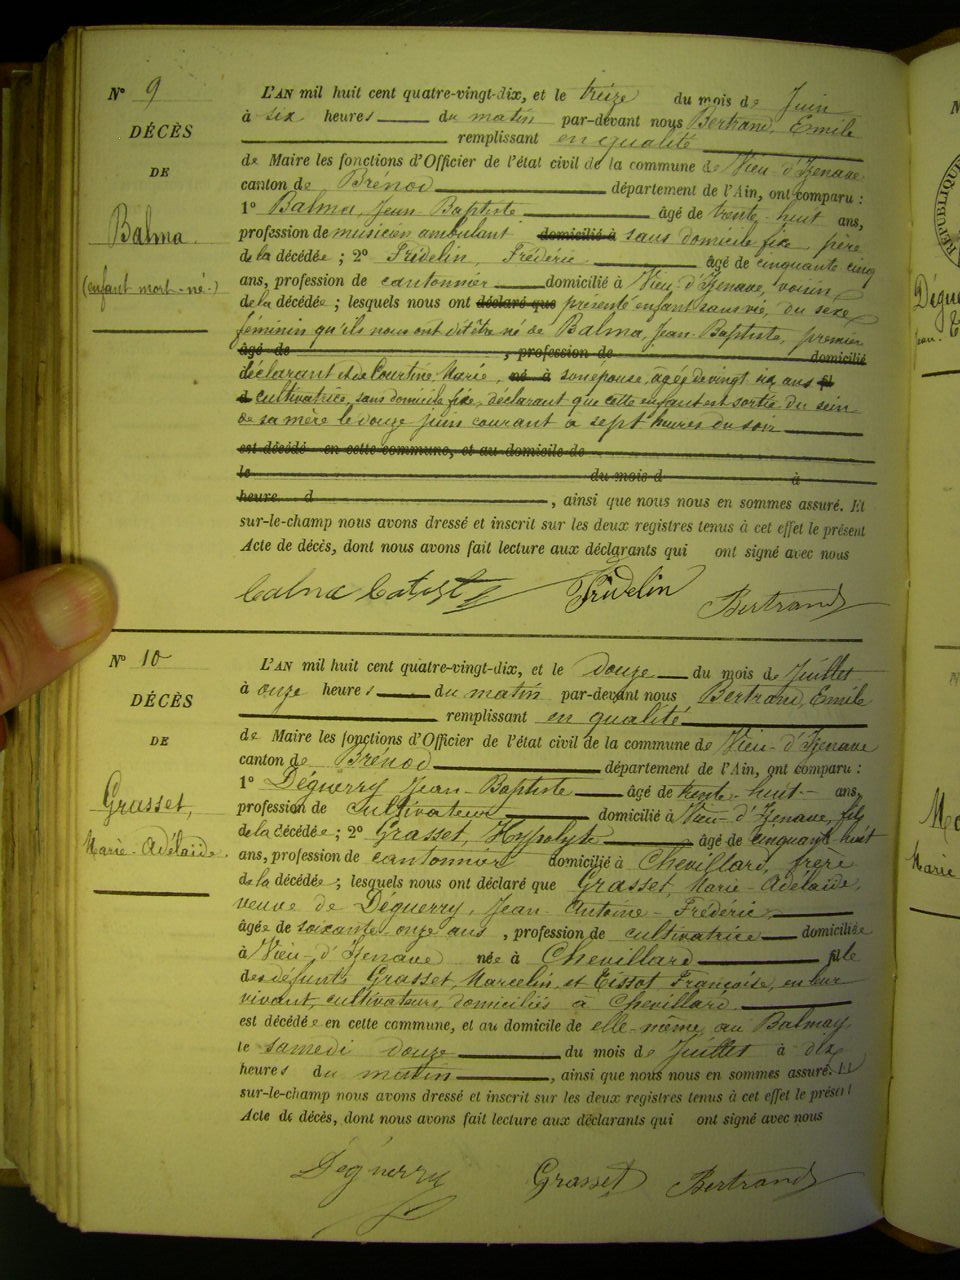 N° 9
DÉCÈS
DE
Balma.
(enfant mort-né-)
L'AN mil huit cent quatre-vingt-dix, et le treize du mois de Juin
à six heures du matin par-devant nous Bertrand, Emile
remplissant en qualité
de Maire les fonctions d'Officier de l'état civil de la commune de Vieu-d'Izenave
canton de Brénod département de l'Ain, ont comparu :
1° Balma, Jean Baptiste âgé de trente-huit ans,
profession de musicien ambulant domicilié à sans domicile fixe père
de la décédée ; 2° Fridelin, Frédéric âgé de cinquante cinq
ans, profession de cantonnier domicilié à Vieu-d'Izenave, voisin
de la décédée ; lesquels nous ont déclaré que présenté enfant sans vie, du sexe
féminin qu'ils nous ont dit être né de Balma, Jean-Baptiste, premier
âgé de , profession de domicilié
déclarant et de Courtine Marie, né à son épouse, âgée de vingt ans fil
d cultivatrice, sans domicile fixe, déclarant que cette enfant est sortie du sein
de sa mère le douze juin courant à sept heures du soir
est décédé en cette commune, et au domicile de
le du mois d à
heure d , ainsi que nous nous en sommes assuré. Et
sur-le-champ nous avons dressé et inscrit sur les deux registres tenus à cet effet le présent
Acte de décès, dont nous avons fait lecture aux déclarants qui ont signé avec nous
Balma Batist Fridelin Bertrand
N° 10
DÉCÈS
DE
Grasset,
Marie-Adélaïde.
L'AN mil huit cent quatre-vingt-dix, et le douze du mois de Juillet
à onze heures du matin par-devant nous Bertrand, Emile
remplissant en qualité
de Maire les fonctions d'Officier de l'état civil de la commune de Vieu-d'Izenave
canton de Brénod département de l'Ain, ont comparu :
1° Déguerry Jean-Baptiste âgé de trente-huit ans,
profession de cultivateur domicilié à Vieu-d'Izenave, fils
de la décédée ; 2° Grasset, Hypolyte âgé de cinquante-huit
ans, profession de cantonnier domicilié à Chevillard, frère
de la décédée ; lesquels nous ont déclaré que Grasset, Marie-Adélaïde,
veuve de Déguerry, Jean-Antoine-Frédéric
âgée de soixante onze ans , profession de cultivatrice domiciliée
à Vieu-d'Izenave née à Chevillard fille
des défunts Grasset, Marcelin, et Tissot Françoise, en leur
vivant, cultivateurs, domiciliés à Chevillard.
est décédée en cette commune, et au domicile de elle-même, au Balmay
le samedi douze du mois de Juillet à dix
heures du matin , ainsi que nous nous en sommes assuré. Et
sur-le-champ nous avons dressé et inscrit sur les deux registres tenus à cet effet le présent
Acte de décès, dont nous avons fait lecture aux déclarants qui ont signé avec nous
Déguerry Grasset Bertrand
RÉPUBLIQUE
Marie